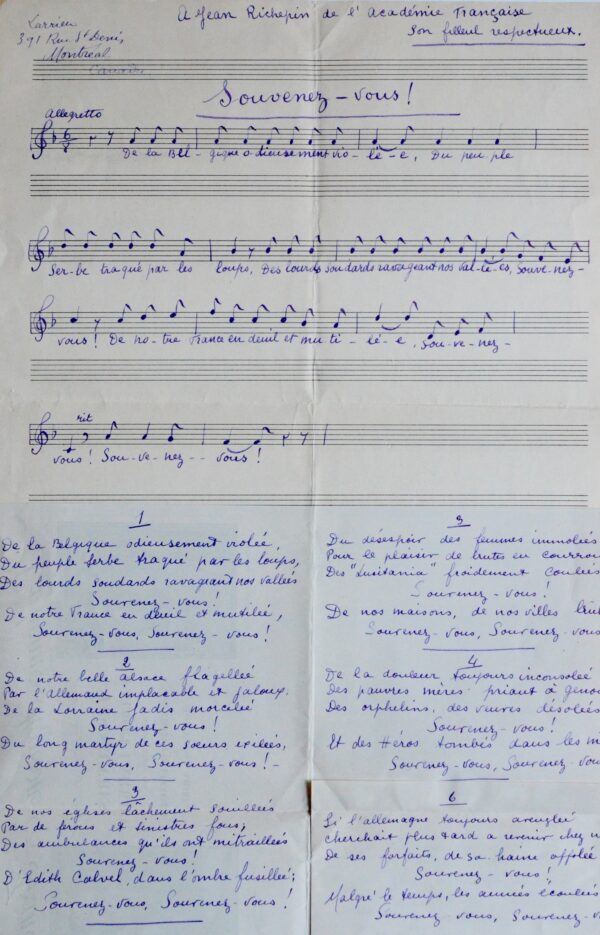 Larrieu
391 Rue St Denis,
Montréal
Canada
A Jean Richepin de l'Académie Française
Son filleul respectueux.
Souvenez-vous!
Allegretto
De la Bel-gique o dieusement vio-lé-e, Du peu ple
Ser-be traqué par les loups, Des lourds soudards ravageant nos val-lé-es, Souve-nez-
vous! De no-tre France en deuil et mu ti-lé-e, Sou-ve-nez-
rit
vous! Sou-ve-nez-- vous!
1
De la Belgique odieusement violée,
Du peuple Serbe traqué par les loups,
Des lourds soudards ravageant nos vallées
Souvenez-vous!
De notre France en deuil et mutilée,
Souvenez-vous, Souvenez-vous!
2
De notre belle Alsace flagellée
Par l'Allemand implacable et jaloux.
De la Lorraine jadis morcelée
Souvenez-vous!
Du long martyr de ces soeurs exilées,
Souvenez-vous, Souvenez-vous!-
3
De nos églises lâchement souillées
Par de féroces et sinistres fous;
Des ambulances qu'ils ont mitraillées
Souvenez-vous!
D'Edith Calvel, dans l'ombre fusillée;
Souvenez-vous, Souvenez-vous!
Du désespoir des femmes immolées
Pour le plaisir de brutes en courrou
Des "Lusitania" froidement coulées
Souvenez-vous!
De nos maisons, de nos villes brul
Souvenez-vous, Souvenez-vous
4
De la douleur toujours inconsolée
Des pauvres mères priant à genou
Des orphelins, des veuves désolées
Souvenez-vous!
Et des Héros tombés dans les m
Souvenez-vous, Souvenez-vou
6
Si l'Allemagne toujours aveuglée
Cherchait plus tard a revenir chez n
De ses forfaits, de sa haine affolée
Souvenez-vous!
Malgré le temps, les années écoulées
Souvenez-vous, Souvenez-v